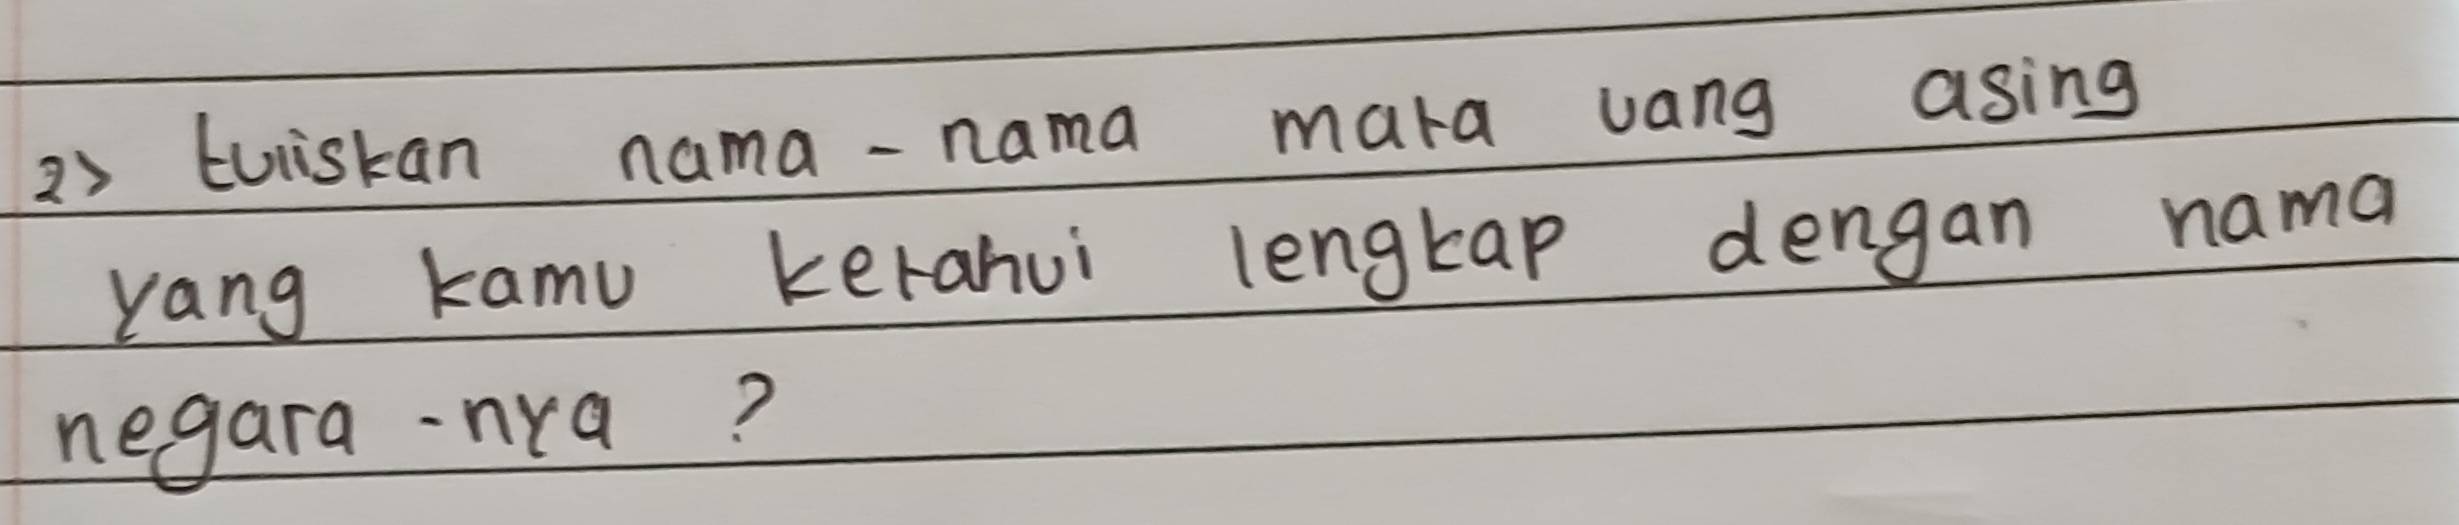 2> tuliskan nama - nama mata uang asing
yang kamu ketahui lengkap dengan nama
negara -nya ?